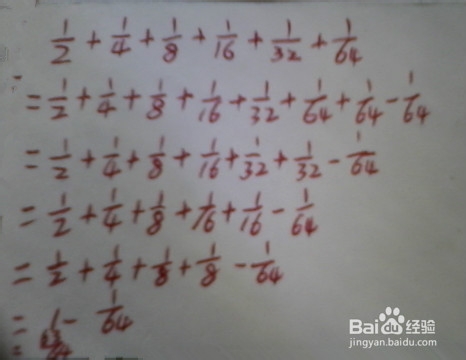 1/2 + 1/4 + 1/8 + 1/16 + 1/32 + 1/64
= 1/2 + 1/4 + 1/8 + 1/16 + 1/32 + 1/64 + 1/64 - 1/64
= 1/2 + 1/4 + 1/8 + 1/16 + 1/32 + 1/32 - 1/64
= 1/2 + 1/4 + 1/8 + 1/16 + 1/16 - 1/64
= 1/2 + 1/4 + 1/8 + 1/8 - 1/64
= 1 - 1/64
=
Baidu 经验
jingyan.baidu.com